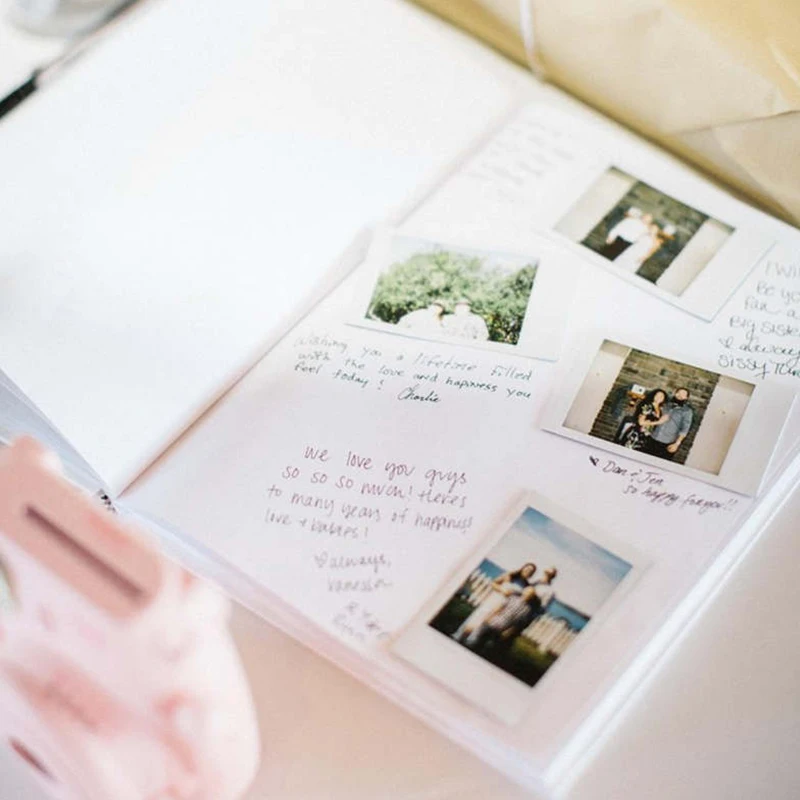 Wishing you a lifetime filled
with the love and happiness you
feel today!
Charlie
I Will
Be yo
far a
Big siste
always
sissy
Dan & Jen
so happy for you!!
We love you guys
so so so much! Here's
to many years of happiness
love & babies!
always,
Vanessa